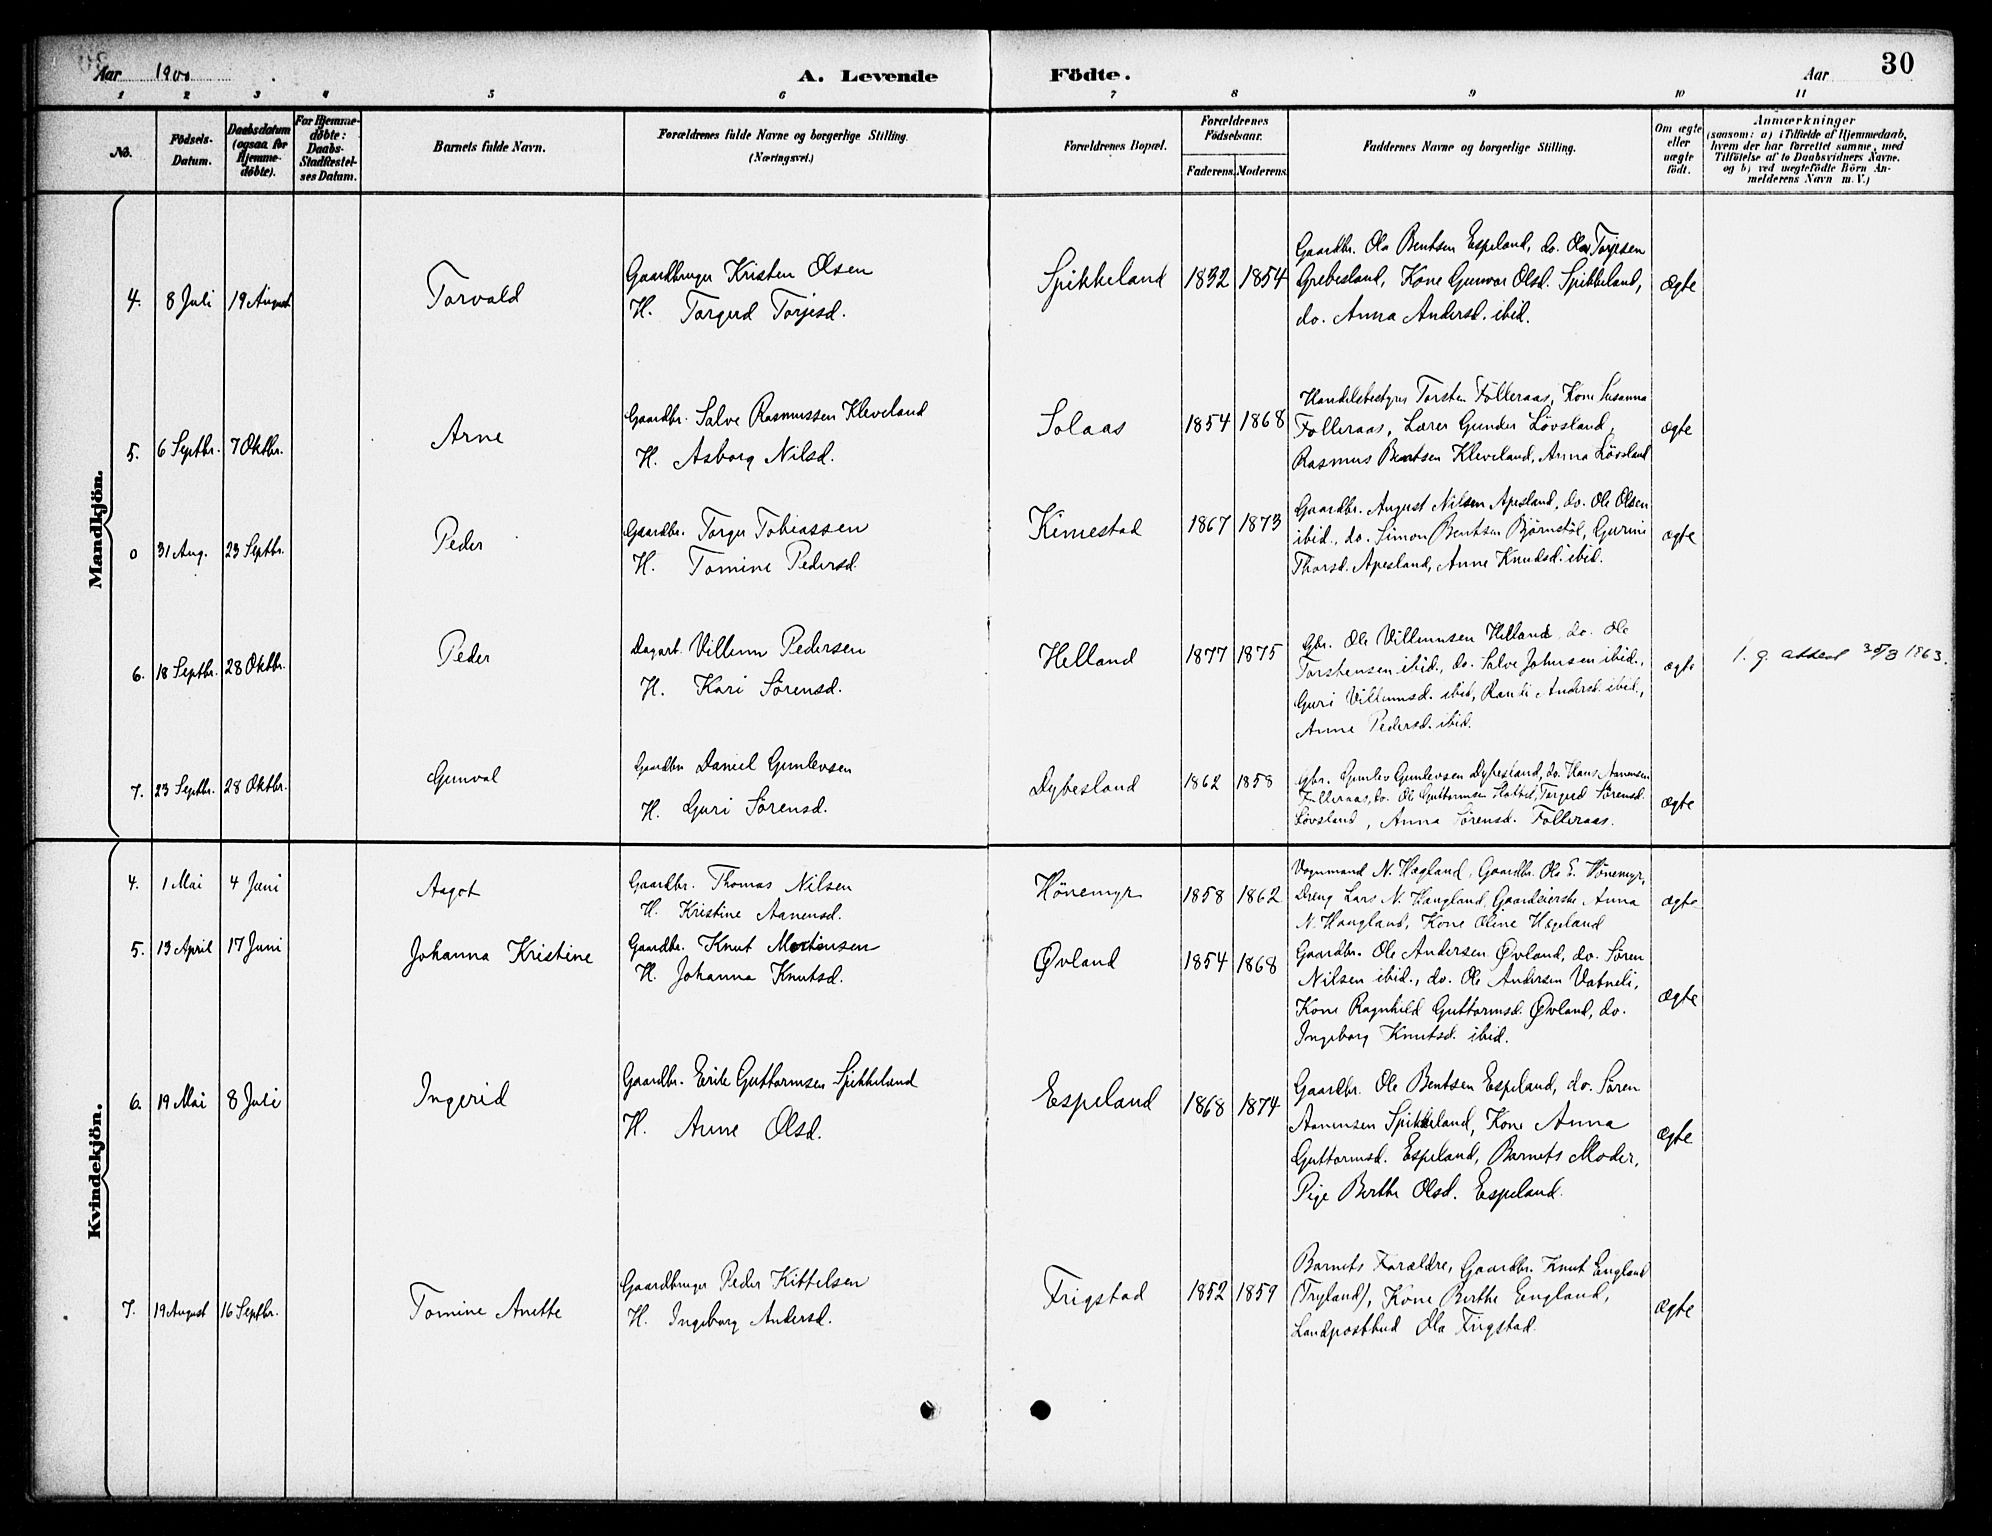 Aar 1900
A. Levende Födte.
Aar
30
1 2 3 4 5 6 7 8 9 10 11
No.
Födsels-
Datum.
Daabsdatum
(ogsaa for
Hjemme-
døbte).
For Hjemme-
døbte:
Daabs-
Stadfæstel-
ses Datum.
Barnets fulde Navn.
Forældrenes fulde Navne og borgerlige Stilling.
(Næringsvei.)
Forældrenes Bopæl.
Forældrenes
Födselsaar.
Faderens. Moderens.
Faddernes Navne og borgerlige Stilling.
Om ægte
eller
uægte
født.
Anmærkninger
(saasom: a) i Tilfælde af Hjemmedaab,
hvem der har forrettet samme, med
Tilföielse af to Daabsvidners Navne.
og b) ved uægtefödte Börn An-
melderens Navn m. V.)
Mandkjön.
4. 8 Juli 19 August Torvald
Gaardbruger Kristen Olsen
H. Torgerd Torjesd.
Spikkeland 1832 1854
Gaardbr. Ola Bentsen Espeland, do. Ola Torjesen
Grebesland, Kone Gunvor Olsd. Spikkeland,
do. Anna Andersd. ibid.
Ægte
5. 6 Septbr. 7 Oktbr. Arne
Gaardbr. Salve Rasmussen Kleveland
H. Asborg Nilsd.
Solaas 1854 1868
Handelsbestyrer Torsten Folleraas, Kone Susanna
Folleraas, Lærer Gunder Lövsland,
Rasmus Bentsen Kleveland, Anna Lövsland
Ægte
0 31 Aug. 23 Septbr. Peder
Gaardbr. Torger Tobiassen
H. Tomine Pedersd.
Kimestad 1867 1873
Gaardbr. August Nilsen Apesland, do. Ole Olsen
ibid., do. Simon Bentsen Bjørnstöl, Gurine
Thorsd. Apesland, Anne Knudsd. ibid.
ægte
6. 18 Septbr. 28 Oktbr. Peder
Dagarb. Villum Pedersen
H. Kari Sörensd.
Helland 1877 1875
Gbr. Ole Villumsen Helland, do. Ole
Torstensen ibid., do. Salve Johnsen ibid.,
Guri Villumsd. ibid, Ranti Andersd. ibid.,
Anne Pedersd. ibid.
ægte
1. g. attest 1963.
7. 23 Septbr. 28 Oktbr. Gunval
Gaardbr Daniel Gunlevsen
H. Guri Sörensd.
Dybesland 1862 1858
Gbr. Gunlev Gunlevsen Dybesland, do. Hans Aanensen
Folleraas, do. Ole Guttormsen Torgerd Sörensd.
Lövsland, Anna Sörensd. Folleraas.
ægte
Kvindekjön.
4. 1 Mai 4 Juni Aagot
Gaardbr. Thomas Nilsen
H. Kristine Aanensd.
Hönemyr 1858 1862
Vognmand N. Hægland, Gaardbr. Ola E. Hönemyr,
Dreng Lars N. Haugland, Gaardeierske Anna
N. Haugland, Kone Oline Hægeland
ægte
5. 13 April 17 Juni Johanna Kristine
Gaardbr. Knut Mortensen
H. Johanna Knutsd.
Øvland 1854 1868
Gaardbr. Ole Andersen Øvland, do. Sören
Nilsen ibid., do. Ole Andersen Vatneli,
Kone Ragnhild Guttormsd. Øvland, do.
Ingeborg Knutsd. ibid.
Ægte
6. 19 Mai 8 Juli Ingerid
Gaardbr. Erik Guttormsen Spikkeland
H. Anne Olsd.
Espeland 1868 1874
Gaardbr. Ole Bentsen Espeland, do. Sören
Aanensen Spikkeland, Kone Anna
Guttormsd. Espeland, Barnets Moder,
Pige Berthe Olsd. Espeland.
Ægte
7. 19 August 16 Septbr. Tomine Anette
Gaardbruger Peder Kittelsen
H. Ingeborg Andersd.
Frigstad 1852 1859
Barnets Forældre, Gaardbr. Knut England
(Tryland), Kone Berthe England,
Landpostbud Ola Frigstad.
Ægte